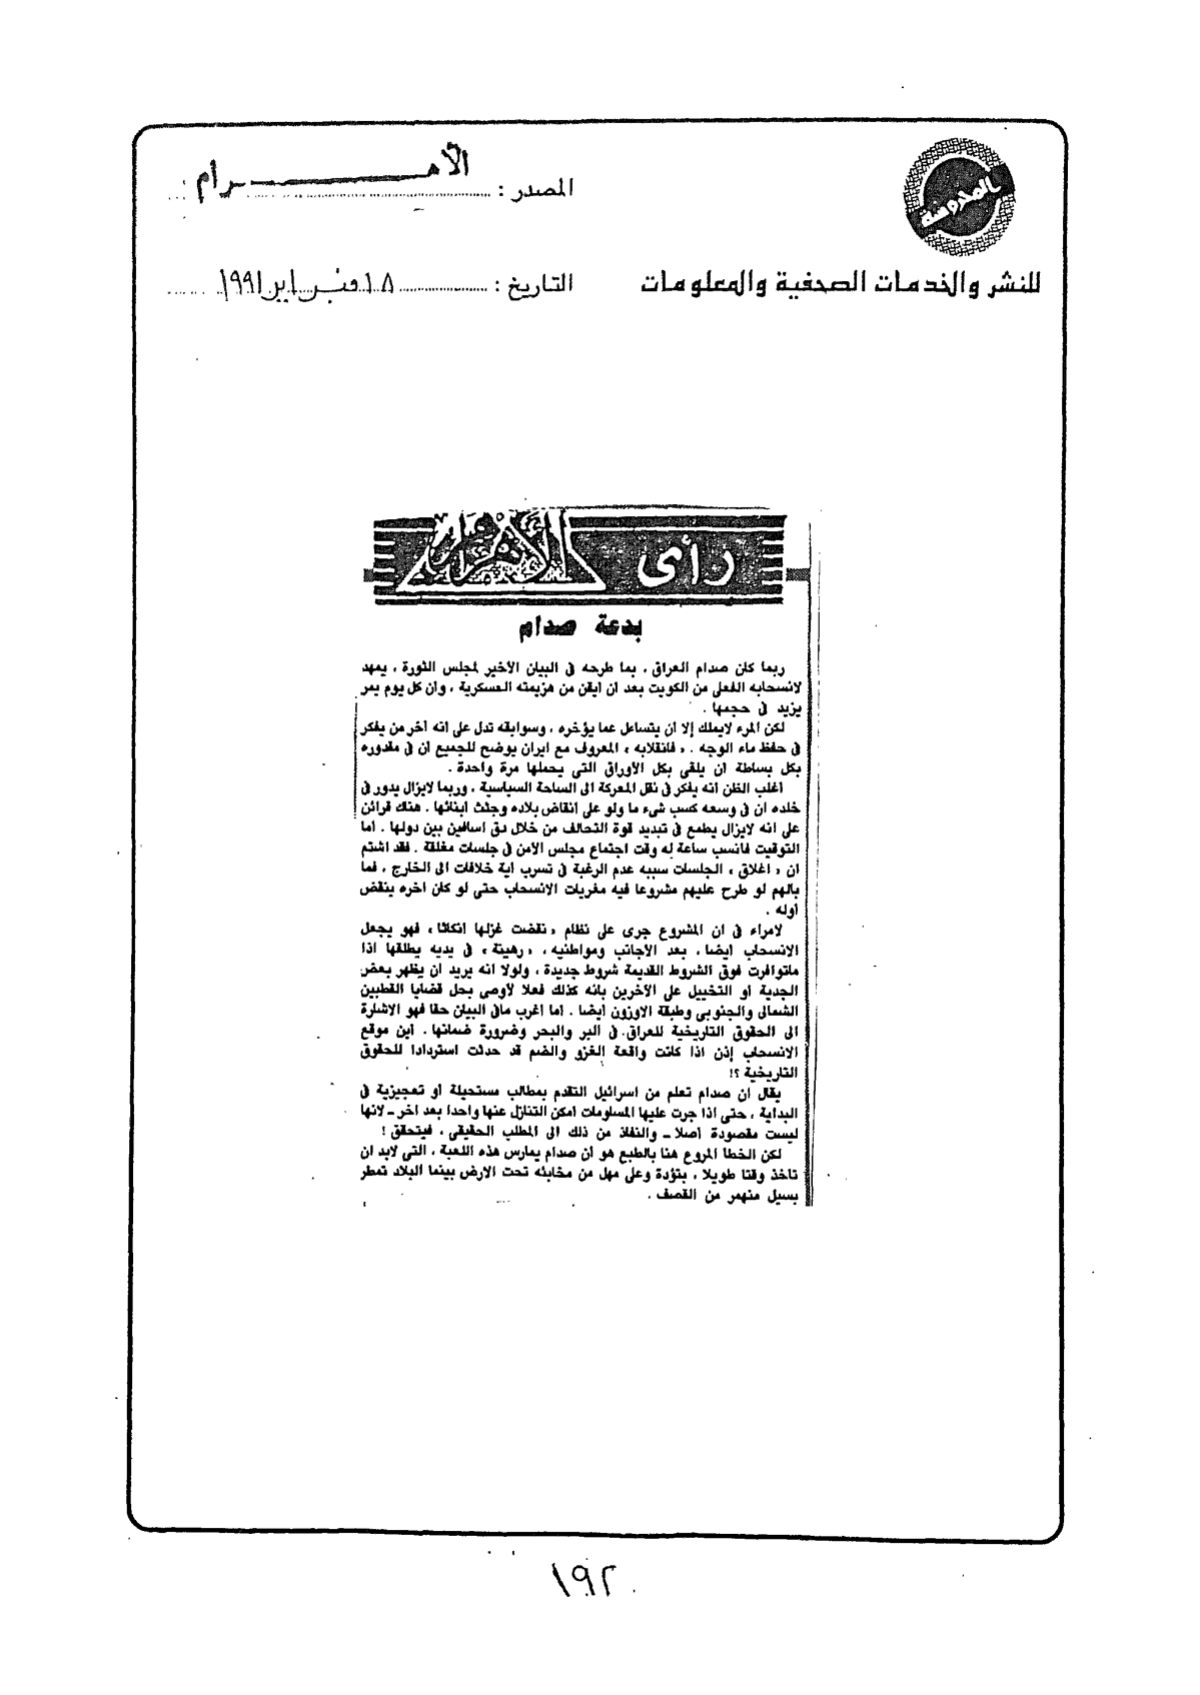 المحروسة
المصدر : الأهـــــرام
للنشر والخدمات الصحفية والمعلومات
التاريخ : ١٨ فبراير ١٩٩١
رأى الأهرام
بدعة صدام
ربما كان صدام العراق ، بما طرحه فى البيان الأخير لمجلس الثورة ، يمهد
لانسحابه الفعلى من الكويت بعد ان ايقن من هزيمته العسكرية ، وان كل يوم يمر
يزيد فى حجمها .
لكن المرء لايملك إلا أن يتساءل عما يؤخره ، وسوابقه تدل على انه أخر من يفكر
فى حفظ ماء الوجه . « فانقلابه » المعروف مع ايران يوضح للجميع ان فى مقدوره
بكل بساطة ان يلقى بكل الأوراق التى يحملها مرة واحدة .
اغلب الظن انه يفكر فى نقل المعركة الى الساحة السياسية ، وربما لايزال يدور فى
خلده ان فى وسعه كسب شىء ما ولو على انقاض بلاده وجثث ابنائها . هناك قرائن
على انه لايزال يطمع فى تبديد قوة التحالف من خلال دق اسافين بين دولها . أما
التوقيت فانسب ساعة له وقت اجتماع مجلس الأمن فى جلسات مغلقة . فقد اشتم
ان « اغلاق » الجلسات سببه عدم الرغبة فى تسرب اية خلافات الى الخارج ، فما
بالهم لو طرح عليهم مشروعا فيه مغريات الانسحاب حتى لو كان اخره ينقض
أوله .
لامراء فى ان المشروع جرى على نظام « نقضت غزلها انكاثا » فهو يجعل
الانسحاب ايضا ، بعد الأجانب ومواطنيه ، « رهينة » فى يديه يطلقها اذا
ماتوافرت فوق الشروط القديمة شروط جديدة ، ولولا انه يريد ان يظهر بعض
الجدية أو التخييل على الأخرين بانه كذلك فعلا لأوصى بحل قضايا القطبين
الشمالى والجنوبى وطبقة الاوزون أيضا . اما اغرب مافى البيان حقا فهو الاشارة
الى الحقوق التاريخية للعراق فى البر والبحر وضرورة ضمانها . اين موقع
الانسحاب إذن اذا كانت واقعة الغزو والضم قد حدثت استردادا للحقوق
التاريخية ؟!
يقال ان صدام تعلم من اسرائيل التقدم بمطالب مستحيلة او تعجيزية فى
البداية ، حتى اذا جرت عليها المساومات امكن التنازل عنها واحدا بعد اخر ــ لانها
ليست مقصودة أصلا ــ والنفاذ من ذلك الى المطلب الحقيقى ، فيتحقق !
لكن الخطا المروع هنا بالطبع هو ان صدام يمارس هذه اللعبة ، التى لابد ان
تاخذ وقتا طويلا ، بتؤدة وعلى مهل من مخابئه تحت الارض بينما البلاد تمطر
بسيل منهمر من القصف .
١٩٢